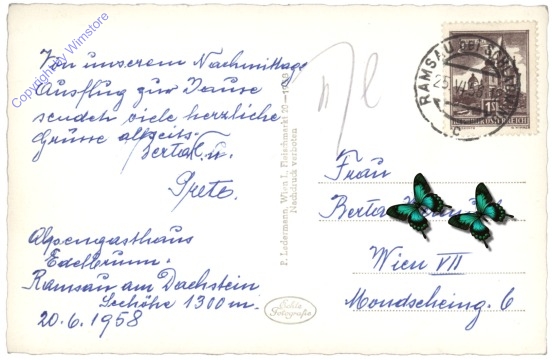 Copyright by Wimstore
Von unserem Nachmittags
Ausflug zur Jause
senden viele herzliche
Grüsse allseits
Bertal u.
Greta.
Alpengasthaus
Edelbrunn.
Ramsau am Dachstein
Seehöhe 1300 m.
20.6.1958
P. Ledermann, Wien I., Fleischmarkt 20
Nachdruck verboten
Echte
Fotografie
RAMSAU bei
25.
c
1 S
REPUBLIK ÖSTERREICH
Frau
Berta
Wien VII
Mondscheing. 6